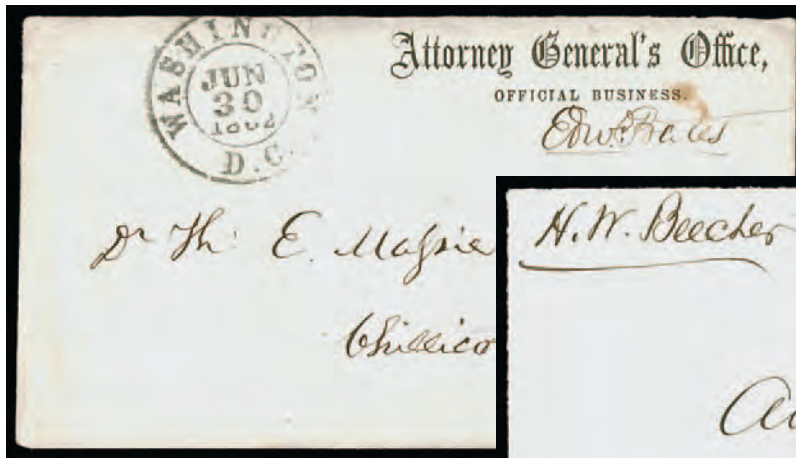 WASHINGTON
JUN
30
1862
D.C.
Attorney General's Office,
OFFICIAL BUSINESS.
Edw. Bates
Dr Th: E. Massie
Chillico
H.W. Beecher